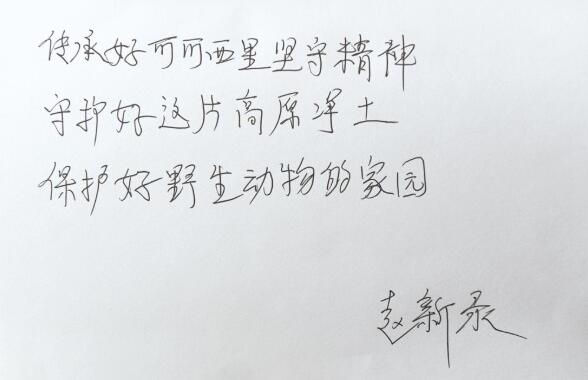 传承好可可西里坚守精神
守护好这片高原净土
保护好野生动物的家园
赵新录